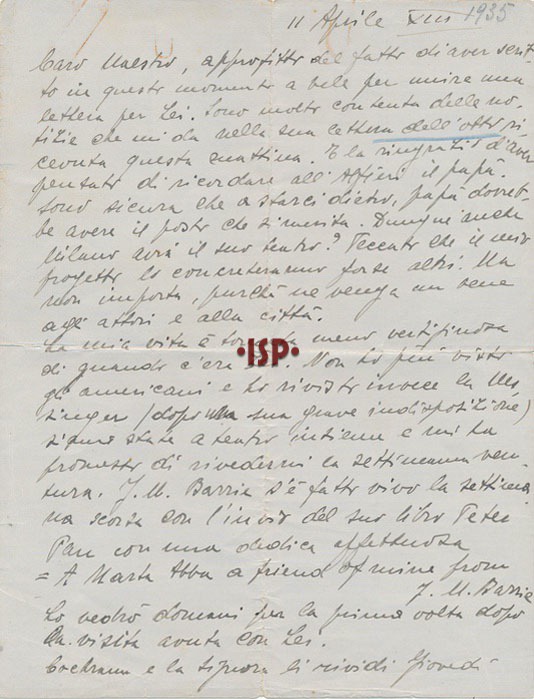 11 Aprile XIII 1935
Caro Maestro, approfitto del fatto di aver scrit-
to in questo momento a bele per unire una
lettera per Lei. Sono molto contenta delle no-
tizie che mi da nella sua lettera dell'otto ri
cevuta questa mattina. E la ringrazio d'aver
pensato di ricordare all'Alfieri il papà.
Sono sicura che a starci dietro, papà dovreb-
be avere il posto che si merita. Dunque anche
Milano avrà il suo teatro? Peccato che il mio
progetto lo concreteranno forse altri. Ma
non importa, purchè ne venga un bene
agli attori e alla città.
La mia vita è meno vertiginosa
di quando c'era Lei. Non ho più visto
gli americani e ho rivisto invece la Mes
singer (dopo la sua grave indisposizione)
siamo state a teatro insieme e mi ha
promesso di rivedermi la settimana ven-
tura. J. M. Barrie s'è fatto vivo la settima
na scorsa con l'invio del suo libro Peter
Pan con una dedica affettuosa
= A Marta Abba a friend of mine from
J. M. Barrie
Lo vedrò domani per la prima volta dopo
la visita avuta con Lei.
Cochrann e la signora li rividi Giovedì
·ISP·